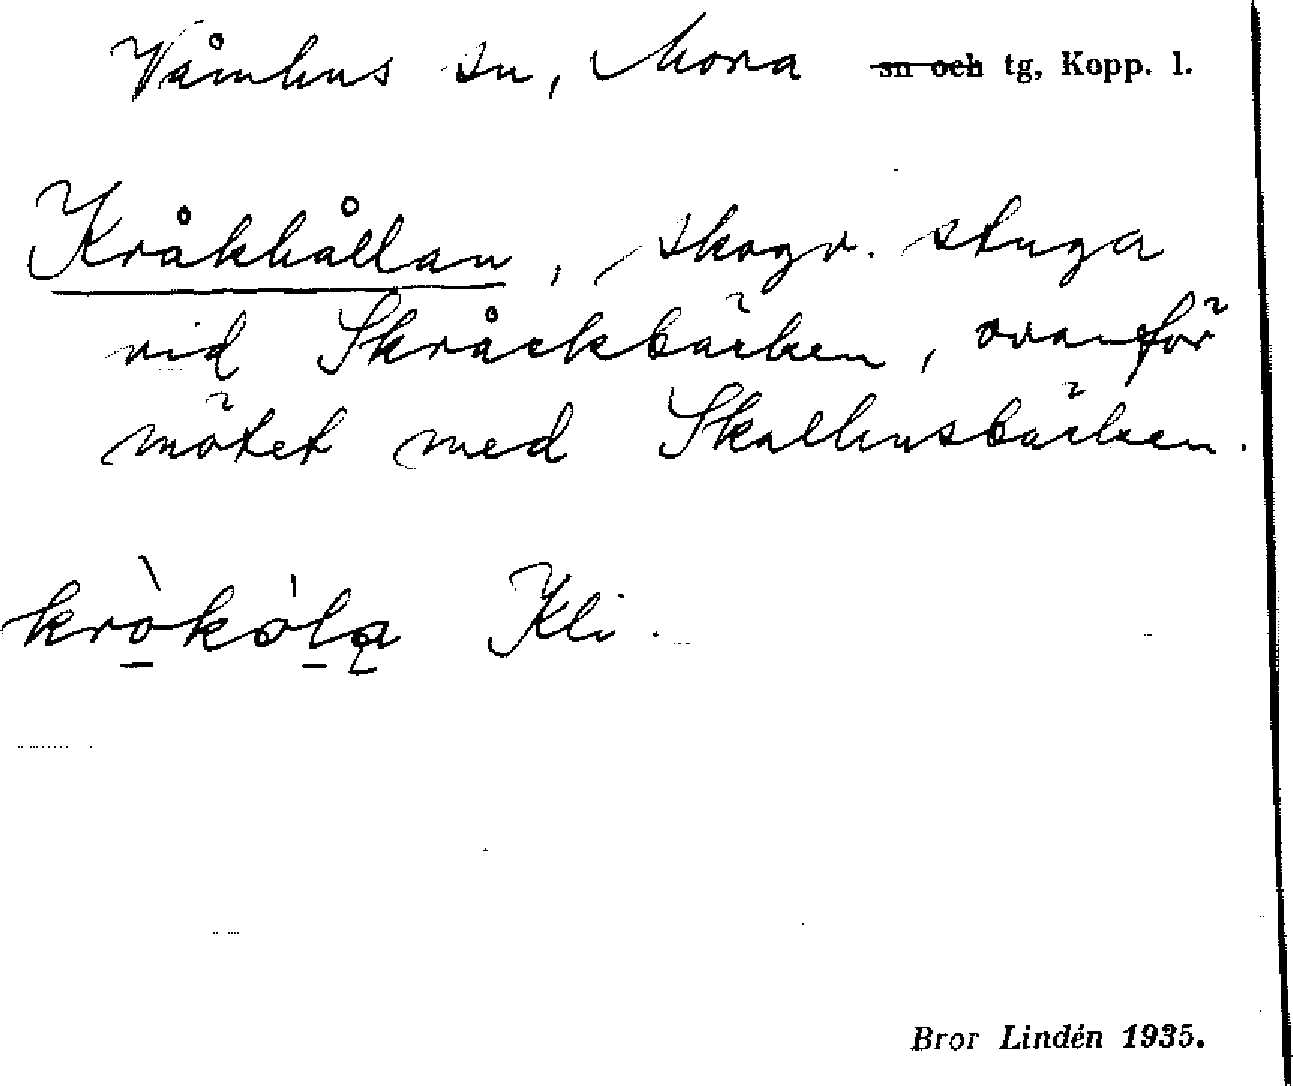 Våmhus sn, Mora sn och tg, Kopp. l.
Kråkhållan, skogv. stuga
vid Skråckbäcken, ovanför
mötet med Skallhusbäcken.
kròkóla Kli.
Bror Lindén 1935.